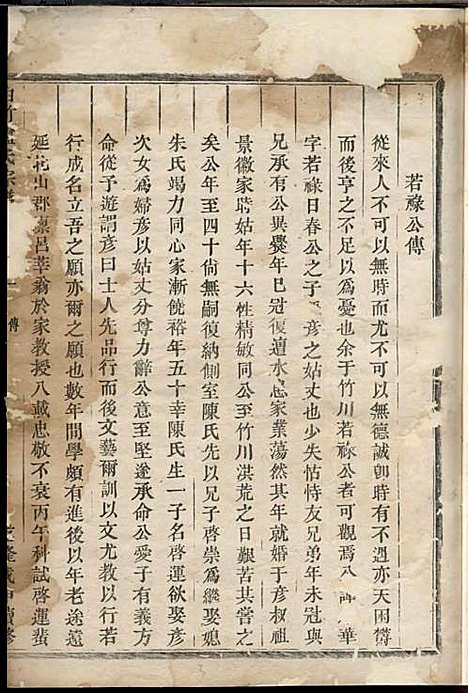 若祿公傳
從來人不可以無時而尤不可以無德誠卽時有不遇亦天困聱
而後亨之不足以為憂也余于竹川若祿公者可觀焉公 華
字若祿日春公之子 彥之姑丈也少失怙恃友兄弟年未冠與
兄承有公異爨年巳冠復遭水患家業蕩然其年就婚于彥叔祖
景徽家聘姑年十六性精敏同公至竹川淇荒之日艱苦其嘗之
矣公年至四十尙無嗣復納側室陳氏先以兄子啓崇為繼娶媳
朱氏竭力同心家漸饒裕年五十幸陳氏生一子名啓運欲娶彥
次女為婦彥以姑丈分尊力辭公意至堅遂承命公愛子有義方
命從予遊謂彥曰士人先品行而後文藝爾訓以文尤教以行若
行成名立吾之願亦爾之願也數年間學頗有進後以年老途遠
延花山郡廩邑莘翁於家教授八載忠敬不衰丙午科試啓運蜚
傳